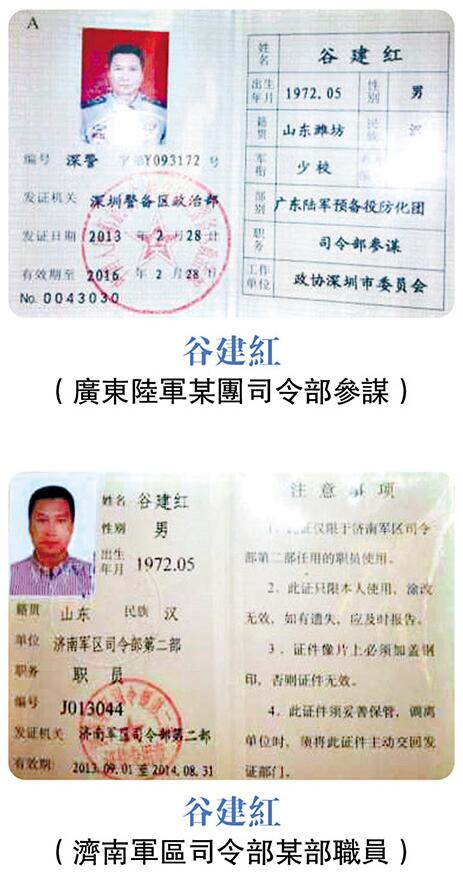 A
姓名 谷建红
出生年月 1972.05 性别 男
籍贯 山东潍坊 民族 汉
军衔 少校
部别 广东陆军预备役防化团
职务 司令部参谋
工作单位 政协深圳市委员会
编号 深警 字第Y093172 号
发证机关 深圳警备区政治部
发证日期 2013 年 2 月 28 日
有效期至 2016 年 2 月 28 日
No.0043030
谷建紅
（廣東陸軍某團司令部參謀）
姓名 谷建红
性别 男
出生年月 1972.05
籍贯 山东 民族 汉
单位 济南军区司令部第二部
职务 职员
编号 J013044
发证机关 济南军区司令部第二部
有效期: 2013.09.01 至 2014.08.31
注意事项
1、此证仅限于济南军区司令
部第二部任用的职员使用。
2、此证只限本人使用，涂改
无效，如有遗失，应及时报告。
3、证件像片上必须加盖钢
印，否则证件无效。
4、此证件须妥善保管，调离
单位时，须将此证件主动交回发
证部门。
谷建紅
（濟南軍區司令部某部職員）